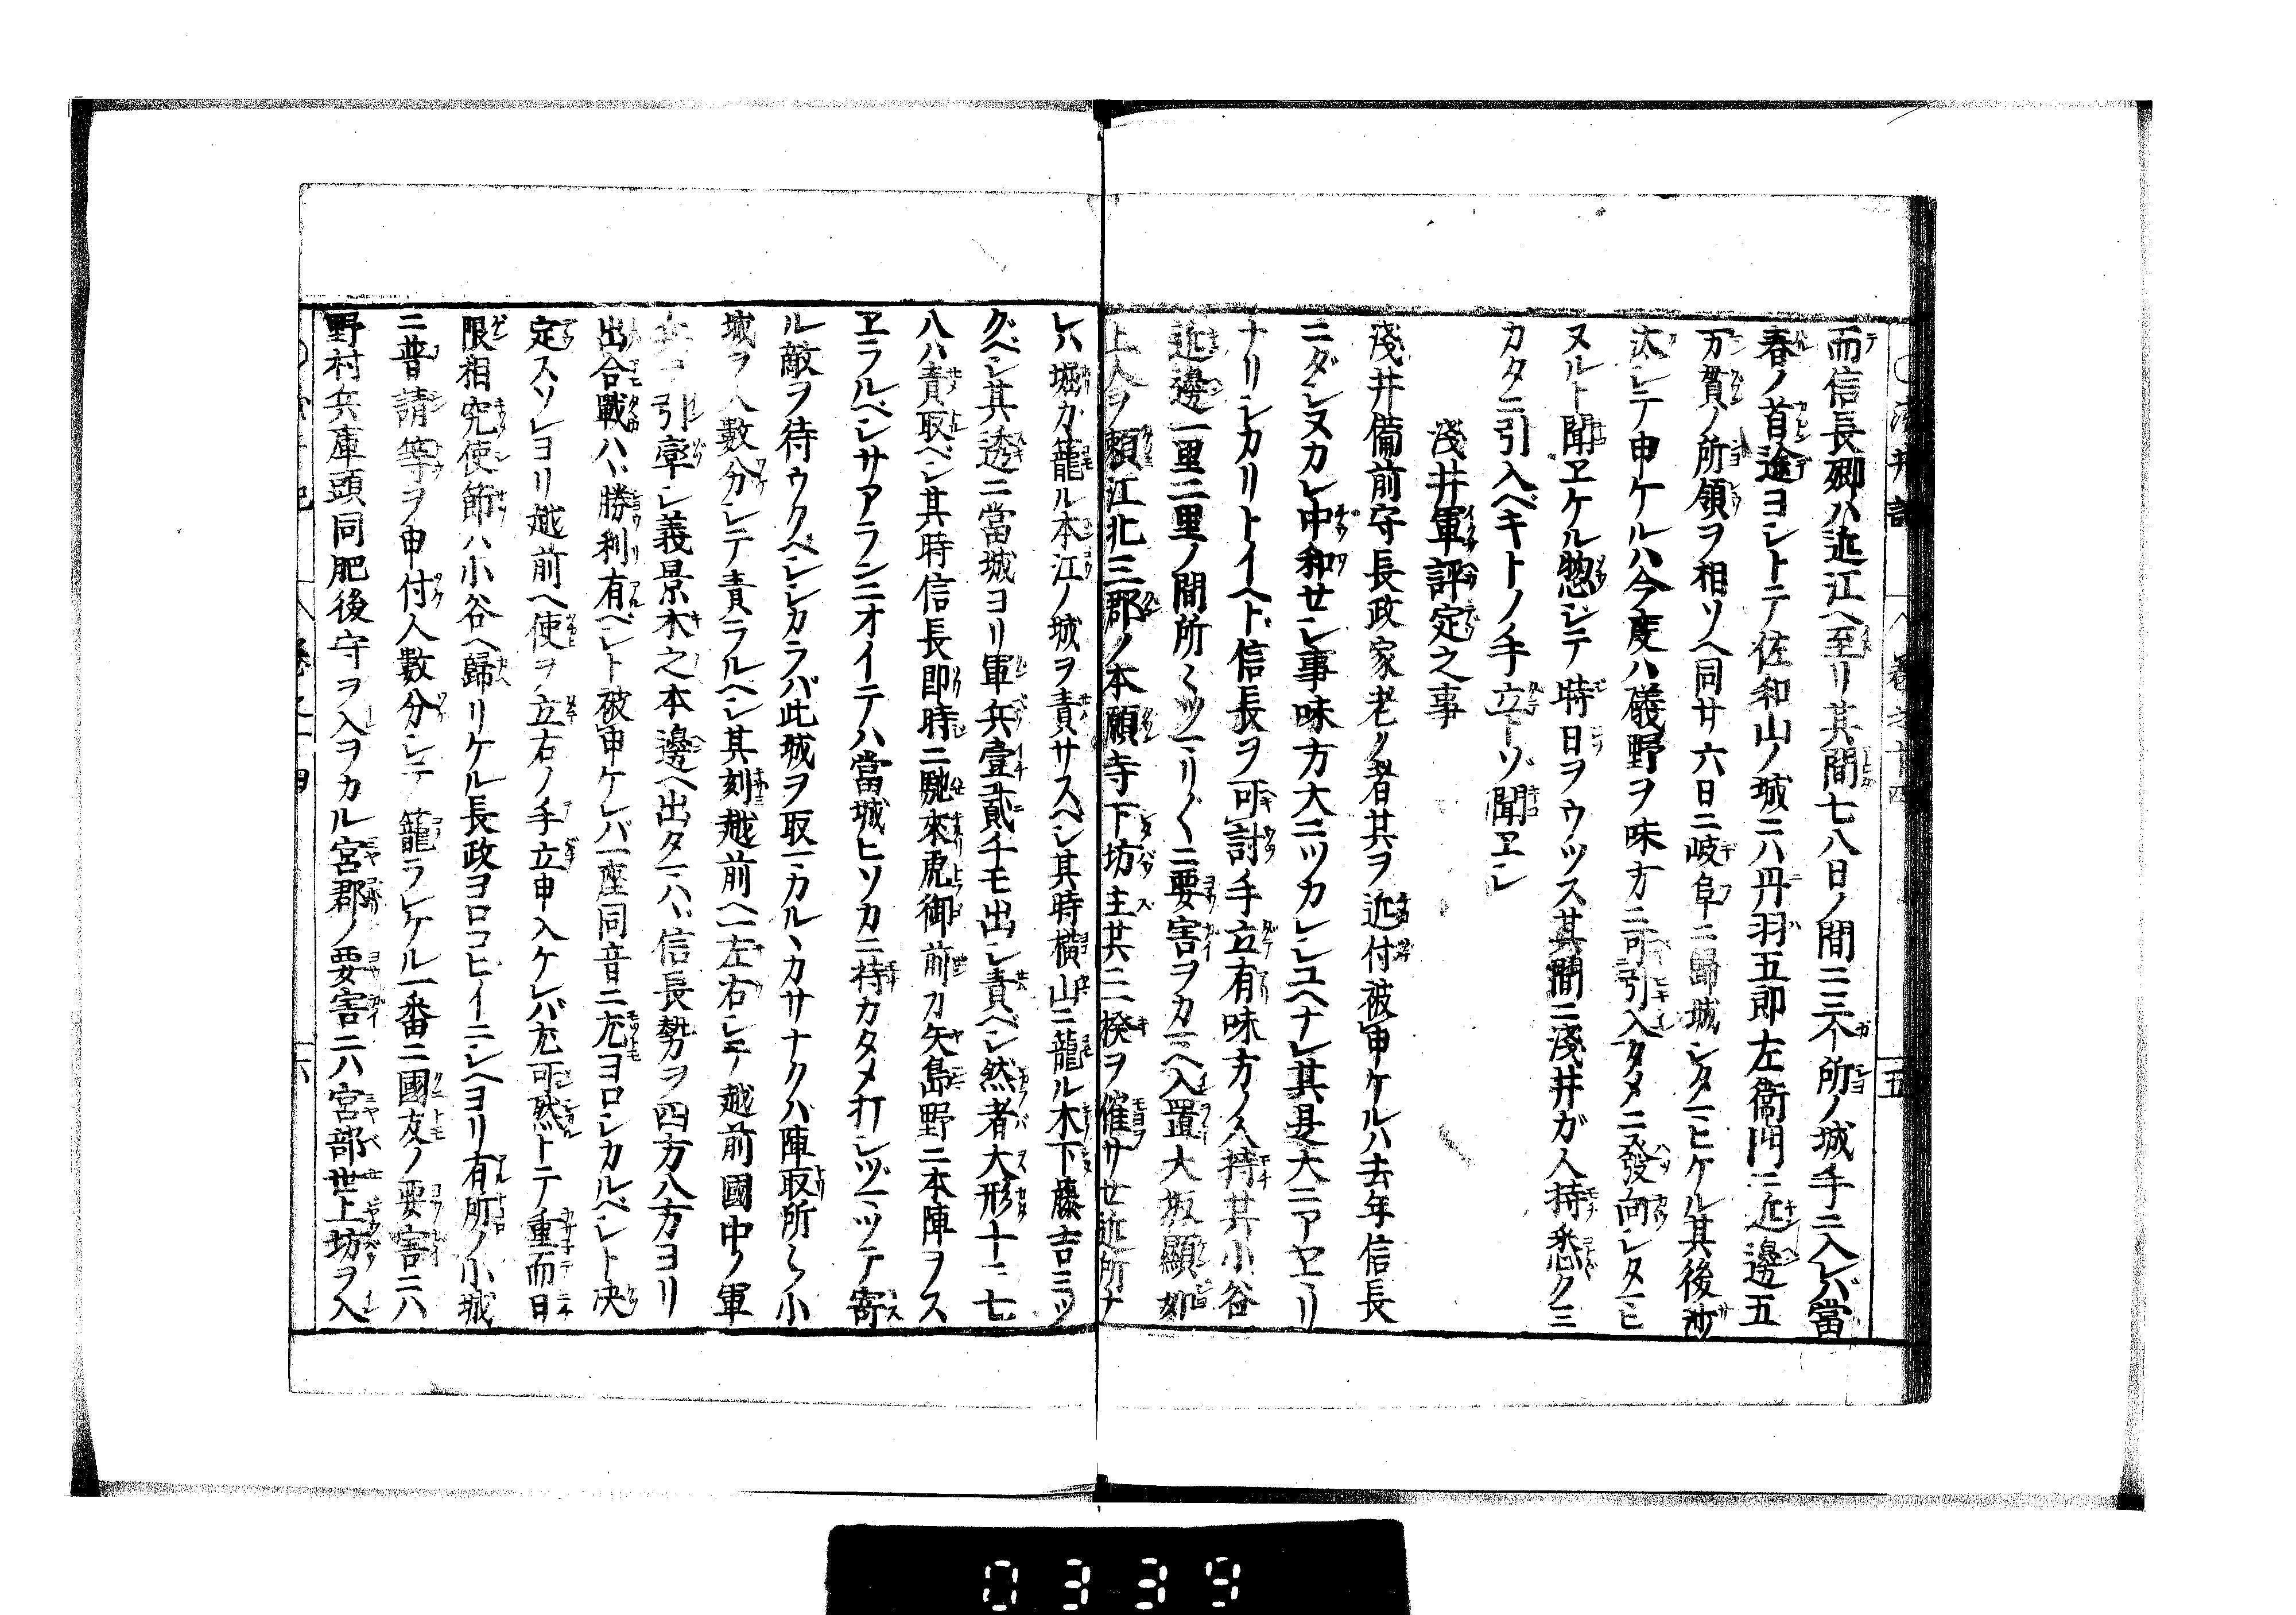 淺井記 卷之十四 五
而信長卿ハ近江ヘ至リ其間七八日ノ間ニ三ケ所ノ城手ニ入レバ當
春ノ首途ヨシトテ佐和山ノ城ニハ丹羽五郎左衛門ニ近邊五
万貫ノ所領ヲ相ソヘ同廿六日ニ岐阜ニ歸城シタマヒケル其後沙
汰シテ申ケルハ今度ハ礒野ヲ味方ニ可引入タメニ發向シタマヒ
ヌルト聞ヱケル惣ジテ時日ヲウツス其間ニ淺井ガ人持悉クミ
カタニ引入ベキトノ手立トソ聞ヱシ
淺井軍評定之事
淺井備前守長政家老ノ者其ヲ近付被申ケルハ去年信長
ニダシヌカレ中和セシ事味方大ニツカレシユヘナレ其是大ニアヤマリ
ナリシカリトイヘド信長ヲ可討手立有味方ノ人持其小谷
近邊一里二里ノ間所々ツマリ〳〵ニ要害ヲカマヘ入置大坂顯如
上人ヲ頼江北三郡ノ本願寺下坊主其ニ一揆ヲ催サセ近所ナ
レハ堀カ籠ル本江ノ城ヲ責サスヘシ其時横山ニ籠ル木下藤吉ミツ
クベシ其透ニ當城ヨリ軍兵壹貳千モ出シ責ベシ然者大形十ニ七
八ハ責取ベシ其時信長即時ニ馳來虎御前カ矢島野ニ本陣ヲス
ヱラルベシサアランニオイテハ當城ヒソカニ持カタメ打シヅマツテ寄
ル敵ヲ待ウクベシシカラバ此城ヲ取マカルヽカサナクハ陣取所々小
城ヲ人數分シテ責ラルヘシ其刻越前ヘ左右シテ越前國中ノ軍
兵ヲ引率シ義景木之本邊ヘ出タマハヾ信長勢ヲ四方八方ヨリ
出合戰ハヾ勝利有ベシト被申ケレバ一座同音ニ尤ヨロシカルベシト决
定スソレヨリ越前ヘ使ヲ立右ノ手立申入ケレバ尤可然トテ重而日
限相究使節ハ小谷ヘ歸リケル長政ヨロコヒイニシヘヨリ有所ノ小城
ニ普請等ヲ申付人數分シテ籠ラレケル一番ニ國友ノ要害ニハ
野村兵庫頭同肥後守ヲ入ヲカル宮郡ノ要害ニハ宮部世上坊ヲ入
0339